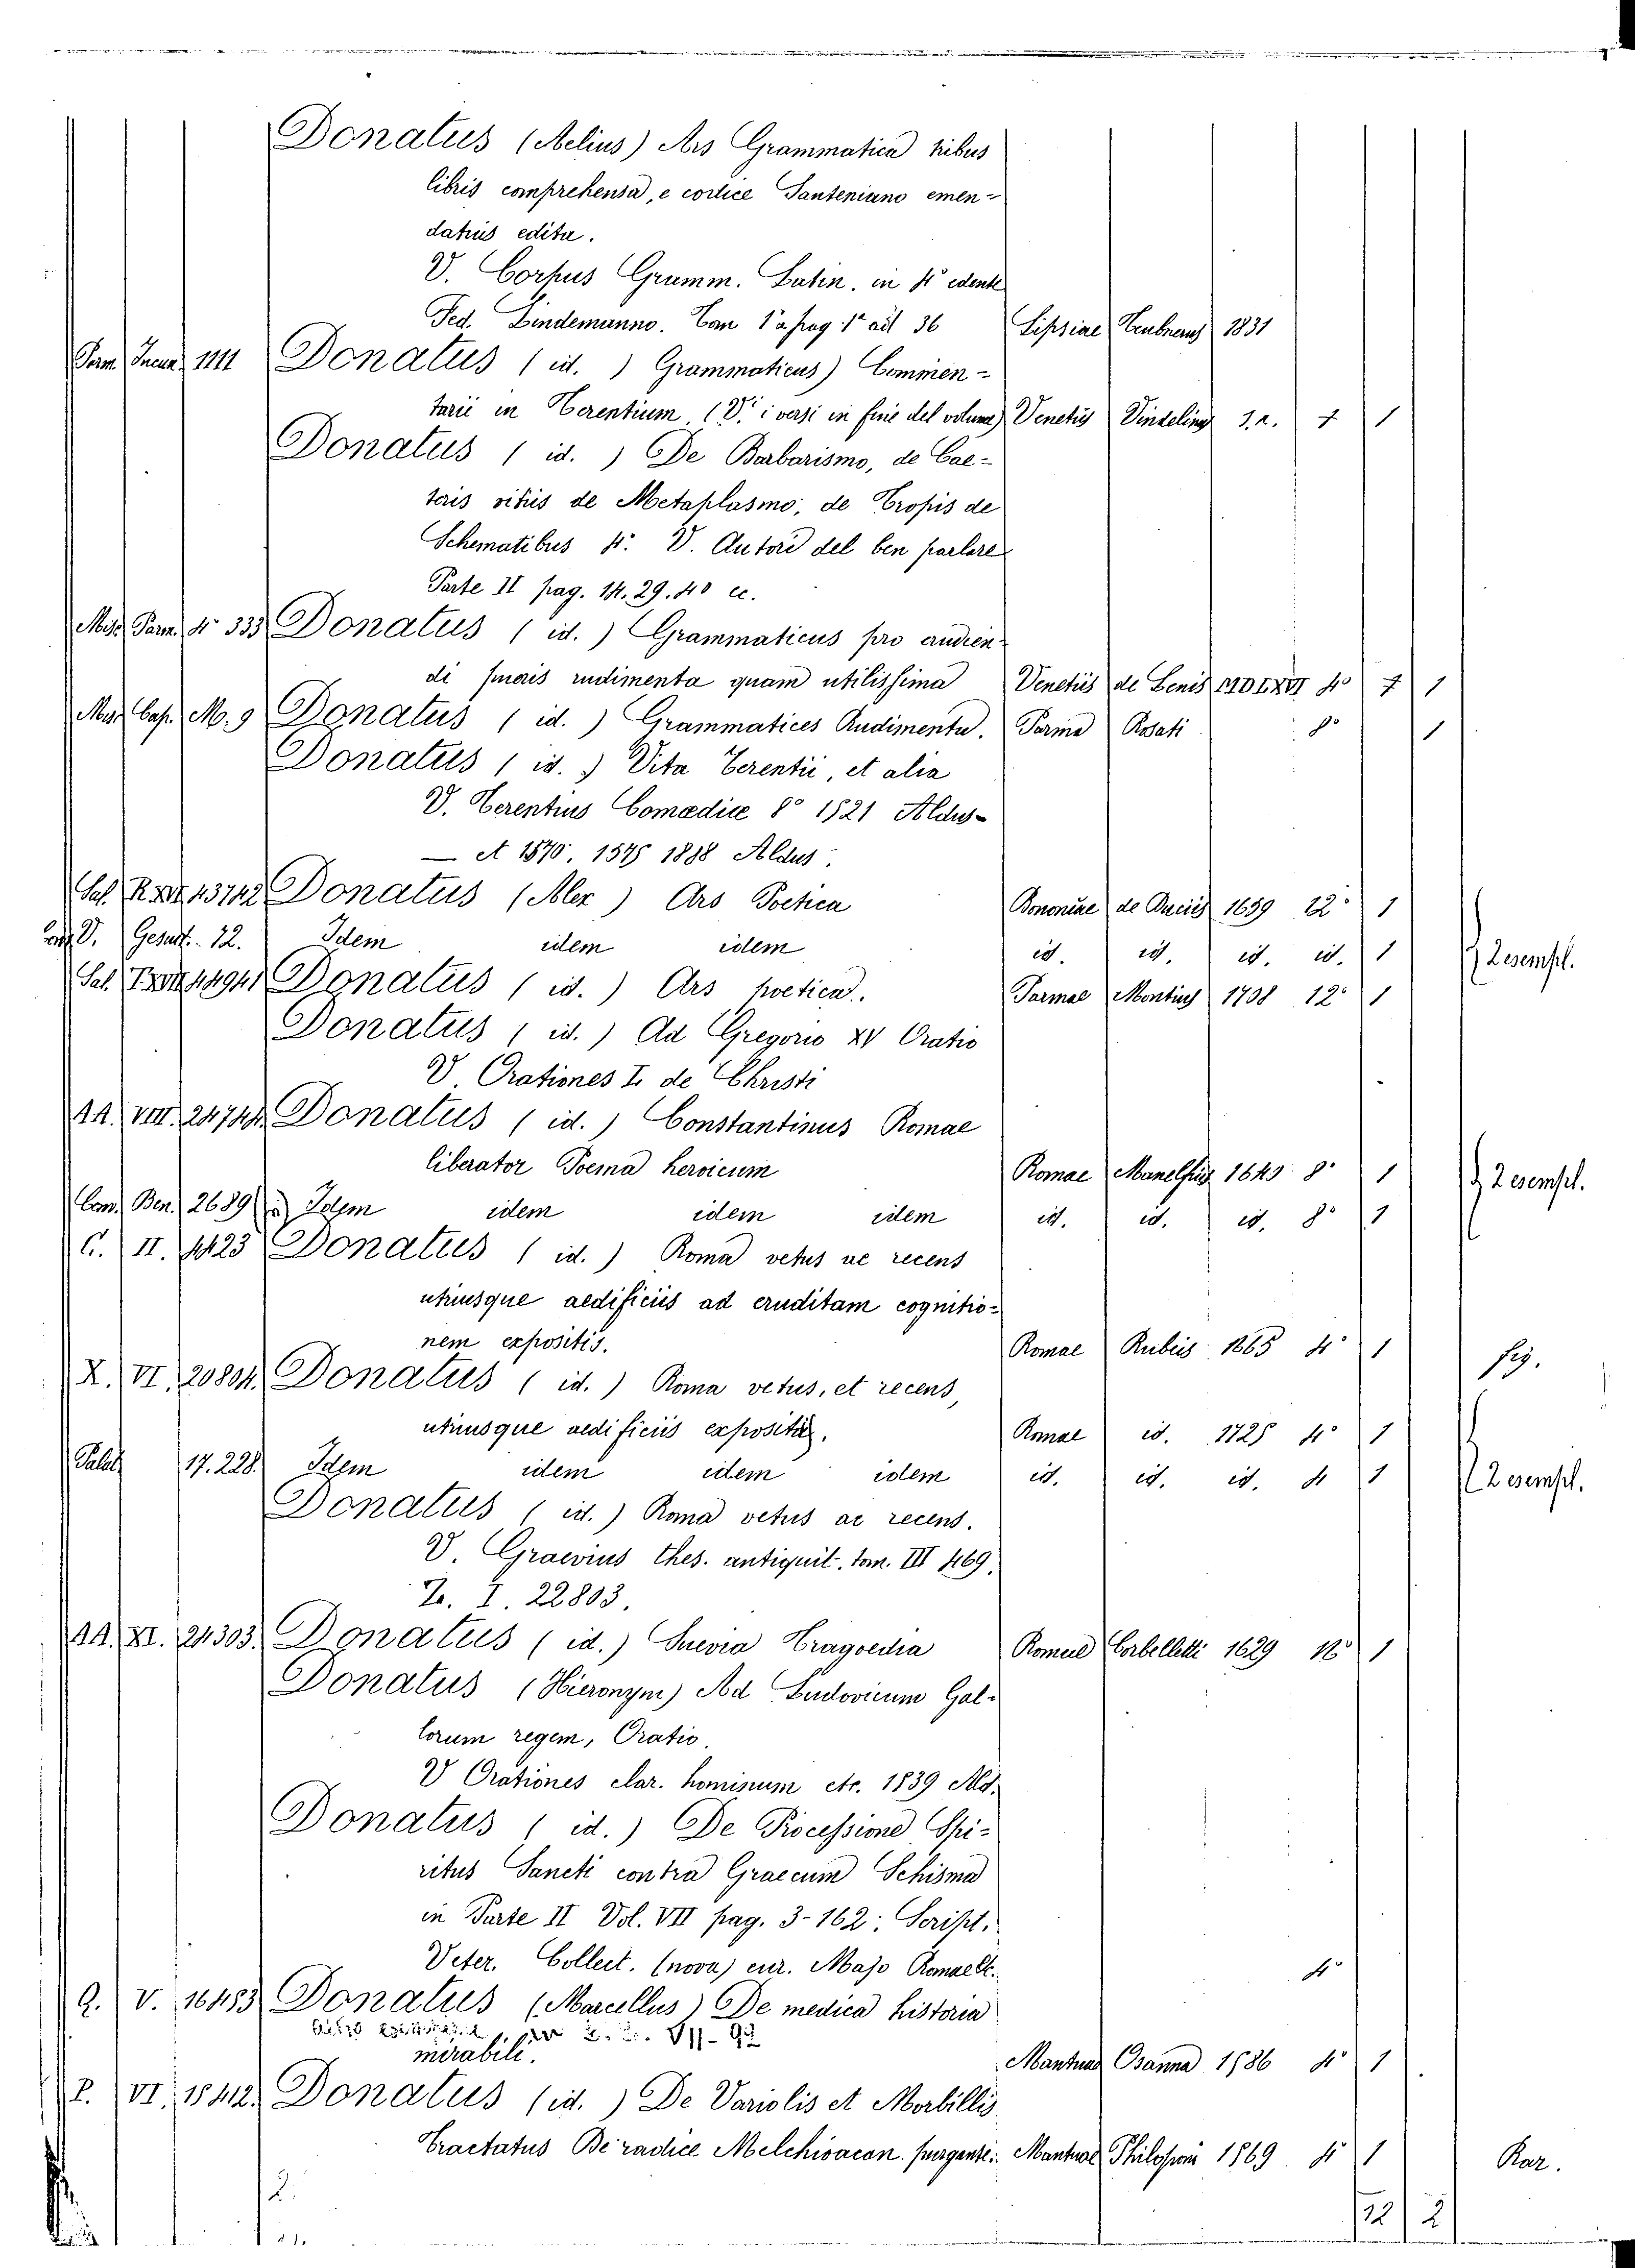 Donatus (Aelius) Ars Grammatica tribus
libris comprehensa, e codice Santeniano emen-
datius edita.
V. Corpus Gramm. Latin. in 4° edente
Fed. Lindemanno. Tom 1° a pag 1ª ad 36 Lipsiae Teubnerus 1831
Pam. Incun. 1111 Donatus (id.) Grammaticus) Commen-
tarii in Terentium (V. i versi in fine del volume) Venetiis Vindelinus s.a. f 1
Donatus (id.) De Barbarismo, de Cae-
teris vitiis de Metaplasmo, de Tropis de
Schematibus 4° V. Autori del ben parlare
Parte II pag. 14. 29. 40 ec.
Misc. Parm. 4° 333 Donatus (id.) Grammaticus pro erudien-
di pueris rudimenta quam utilissima Venetiis de Lenis MDLXVI 4° 1
Misc. Cap. M. 9 Donatus (id.) Grammatices Rudimenta. Parma Rosati 8° 1
Donatus (id.) Vita Terentii, et alia
V. Terentius Comædiæ 8° 1521 Aldus-
— et 1570, 1575 1588 Aldus.
Sal. 43742 Donatus (Alex) Ars Poetica Bononiae de Duciis 1659 12° 1
V. Gesuit. 12. Idem idem idem id. id. id. id. 1 2 esempl.
Sal. 44941 Donatus (id.) Ars poetica. Parmae Montius 1708 12° 1
Donatus (id.) Ad Gregorio XV Oratio
V. Orationes I. de Christi
AA. VIII. 24744 Donatus (id.) Constantinus Romae
liberator Poema heroicum Romae Manelfius 1640 8° 1 2 esempl.
Cam. Ben. 2689 Idem idem idem idem id. id. id. 8° 1
C. II. 4423 Donatus (id.) Roma vetus ac recens
utriusque aedificiis ad eruditam cognitio-
nem expositis. Romae Rubeis 1665 4° 1 fig.
X. VI. 20804. Donatus (id.) Roma vetus, et recens,
utriusque aedificiis expositis. Romae id. 1725 4° 1
Palat. 17.228. Idem idem idem idem id. id. id. 4 1 2 esempl.
Donatus (id.) Roma vetus ac recens.
V. Graevius Thes. antiquit. tom. III 469.
Z. I. 22803.
AA. XI. 24303. Donatus (id.) Suevia Tragoedia Romae Corbelletti 1629 16° 1
Donatus (Hieronym) Ad Ludovicum Gal-
lorum regem, Oratio.
V Orationes clar. hominum etc. 1559 Ald.
Donatus (id.) De Processione Spi-
ritus Sancti contra Graecum Schisma
in Parte II Vol. VII pag. 3-162. Script.
Veter. Collect. (nova) cur. Majo Romae Et. 4°
Q. V. 16433 Donatus (Marcellus) De medica historia
mirabili. Mantuae Osanna 1586 4° 1
P. VI. 15412. Donatus (id.) De Variolis et Morbillis
Tractatus De radice Melchioacan. purgante. Mantuae 1569 4° 1 Rar.
2.
12 2